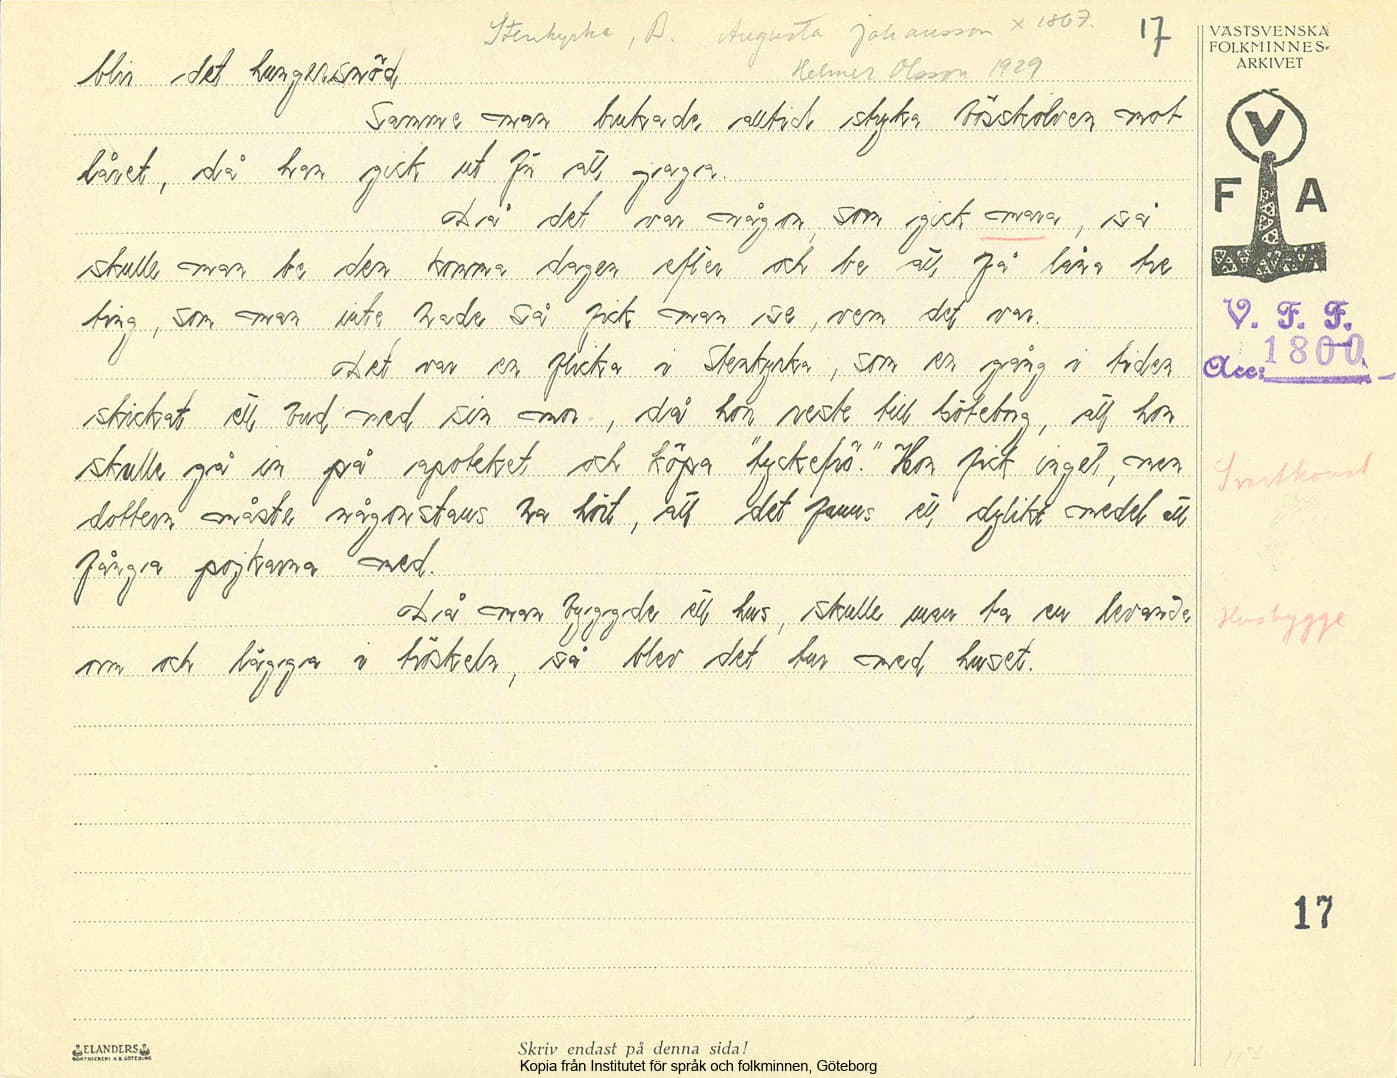 Stenkyrka, B. Augusta Johansson x 1867. 17
Helmer Olsson 1929
VÄSTSVENSKA
FOLKMINNES-
ARKIVET
V
F A
V. F. F.
Acc: 1800
blir det hungersnöd
Samme man brukade alltid stryka bösskolven mot
låret, då han gick ut för att jaga.
Då det var någon, som gick mara, så
skulle man be den komma dagen efter och be att få låna tre
ting, som man inte hade så fick man se, vem det var.
Det var en flicka i Stenkyrka, som en gång i tiden
skickat ett bud med sin mor, då hon reste till Göteborg, att hon
skulle gå in på apoteket och köpa "tyckefrö." Hon fick inget, men
dottern måste någonstans ha hört, att det fanns ett dylikt medel att
fånga pojkarna med.
Då man byggde ett hus, skulle man ta en levande
orm och lägga i tröskeln, så blev det tur med huset.
Svartkonst
Husbygge
17
ELANDERS
BOKTRYCKERI A.B. GÖTEBORG
Skriv endast på denna sida!
Kopia från Institutet för språk och folkminnen, Göteborg